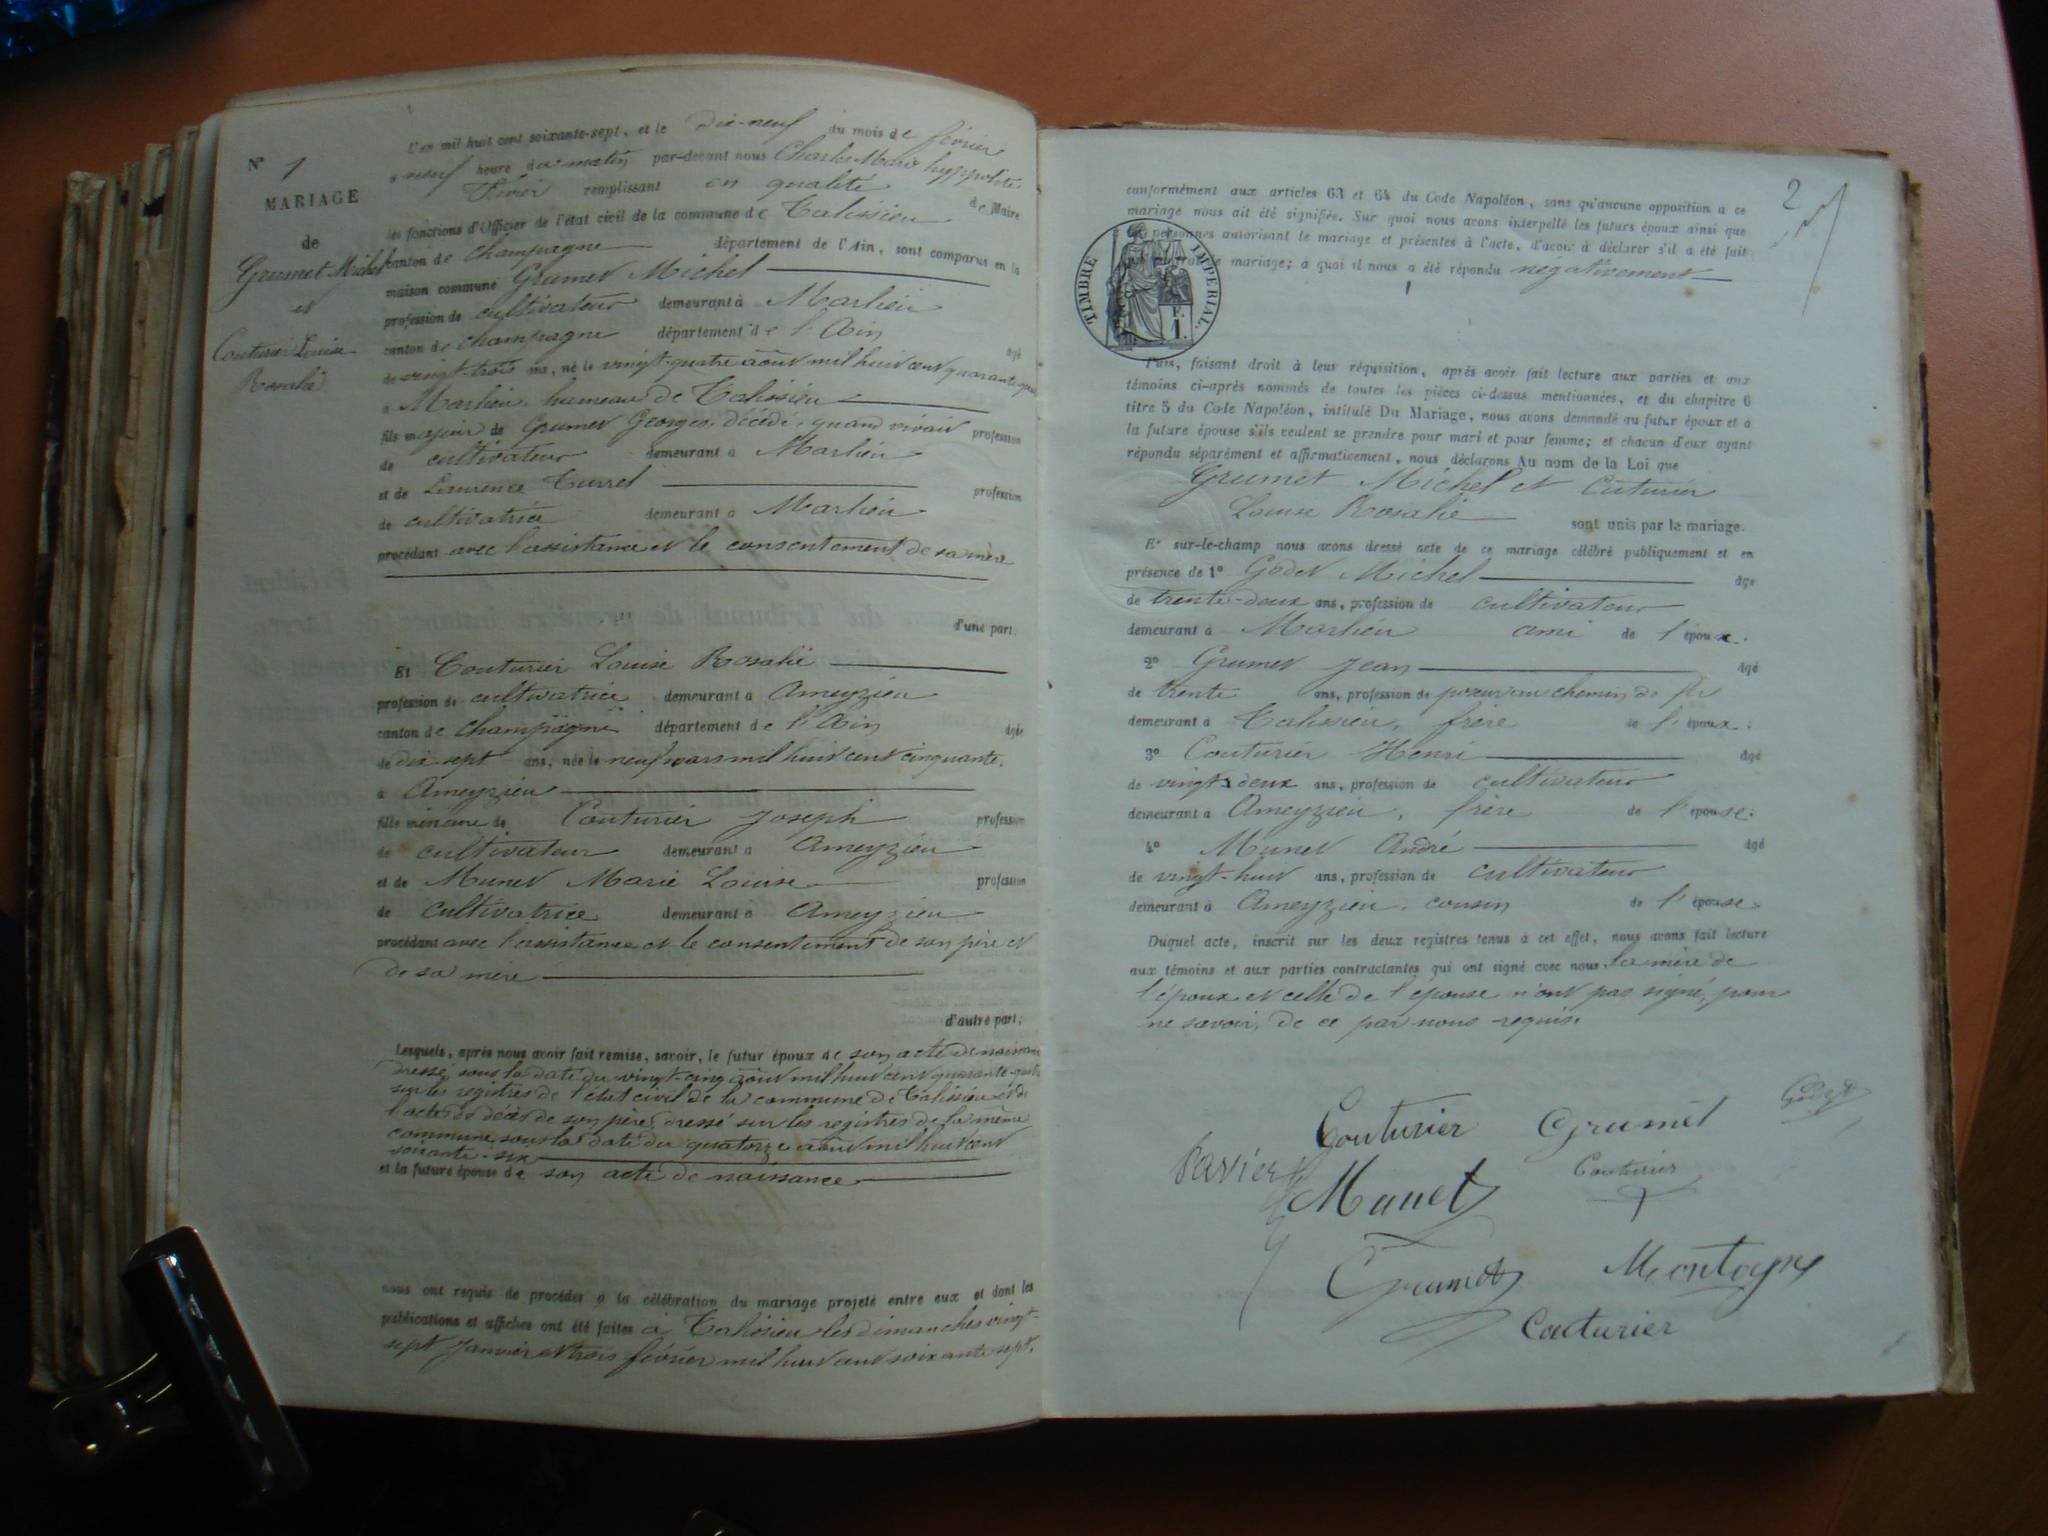 L'an mil huit cent soixante-sept, et le dix-neuf du mois de février
à neuf heure du matin par-devant nous Charles Marie hyppolite
remplissant en qualité de Maire
les fonctions d'Officier de l'état civil de la commune de Talissieu
canton de Champagne département de l'Ain, sont comparus en la
maison commune Grumet Michel
profession de cultivateur demeurant à Marlieu
canton de champagne département de l'Ain âgé
de vingt-trois ans, né le vingt-quatre août mil huit cent quarante-quatre
à Marlieu, hameau de Talissieu
fils majeur de Grumet Georges, décédé, quand vivait profession
de cultivateur demeurant à Marlieu
et de Laurence Turrel profession
de cultivatrice demeurant à Marlieu
procédant avec l'assistance et le consentement de sa mère
d'une part.
Et Couturier Louise Rosalie
profession de cultivatrice demeurant à Ameyzieu
canton de Champagne département de l'Ain âgée
de dix-sept ans, née le neuf mars mil huit cent cinquante,
à Ameyzieu
fille mineure de Couturier Joseph profession
de cultivateur demeurant à Ameyzieu
et de Munet Marie Louise profession
de cultivatrice demeurant à Ameyzieu
procédant avec l'assistance et le consentement de son père et
de sa mère
d'autre part;
Lesquels, après nous avoir fait remise, savoir, le futur époux de son acte de naissance
dressé sous la date du vingt-cinq août mil huit cent quarante-quatre
sur les registres de l'état civil de la commune de Talissieu et de
l'acte de décès de son père, dressé sur les régistres de la même
commune, sous la date du quatorze août mil huit cent
soixante-six
et la future épouse de son acte de naissance
nous ont requis de procéder à la célébration du mariage projeté entre eux et dont les
publications et affiches ont été faites à Talissieu les dimanches vingt-
sept Janvier et trois février mil huit cent soixante sept.
N° 1
MARIAGE
de
Grumet Michel
et
Couturier Louise
Rosalie
2
conformément aux articles 63 et 64 du Code Napoléon, sans qu'aucune opposition à ce
mariage nous ait été signifiée. Sur quoi nous avons interpellé les futurs époux ainsi que
personnes autorisant le mariage et présentes à l'acte, d'avoir à déclarer s'il a été fait
mariage; à quoi il nous a été répondu négativement
TIMBRE IMPERIAL.
F.
1.
Puis, faisant droit à leur réquisition, après avoir fait lecture aux parties et aux
témoins ci-après nommés de toutes les pièces ci-dessus mentionnées, et du chapitre 6
titre 5 du Code Napoléon, intitulé Du Mariage, nous avons demandé au futur époux et à
la future épouse s'ils veulent se prendre pour mari et pour femme; et chacun d'eux ayant
répondu séparément et affirmativement, nous déclarons Au nom de la Loi que
Grumet Michel et Cuturier
Louise Rosalie sont unis par le mariage.
Et sur-le-champ nous avons dressé acte de ce mariage célébré publiquement et en
présence de 1° Godet Michel âgé
de trente-deux ans, profession de cultivateur
demeurant à Marlieu ami de l'époux.
2° Grumet Jean âgé
de trente ans, profession de poseur au chemin de fer
demeurant à Talissieu, frère de l'époux;
3° Couturier Henri âgé
de vingt-deux ans, profession de cultivateur
demeurant à Ameyzieu, frère de l'épouse;
4° Munet André âgé
de vingt-huit ans, profession de cultivateur
demeurant à Ameyzieu, cousin de l'épouse.
Duquel acte, inscrit sur les deux registres tenus à cet effet, nous avons fait lecture
aux témoins et aux parties contractantes qui ont signé avec nous la mère de
l'époux et celle de l'épouse n'ont pas signé, pour
ne savoir, de ce par nous requis.
Couturier Grumet Godet
Couturier
Munet
Grumet
Couturier